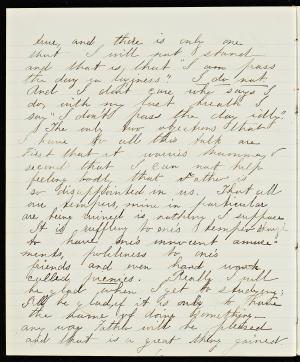 true, and there is only one
that I will not stand
and that is, that "I am pass
the day in lazyness" I do not
And I don't care who says I
do, with my first breath I
say "I don't pass the day idly."
The only two objections that
I have to all this talk are
First that it worries Mamma &
second that I can not help
feeling badly that Father is
so disappointed in us. That all
our tempers, mine in particular
are being ruined is, nothing I suppose
It is ruffling to one's temper though
to have one's innocent amuse-
ments, politeness to one's
friends and even hard work
called Really I will
be glad when I get to studying;
I'll be glad if it is only to have
the name of doing something
any way Father will be pleased
and that is a great thing gained